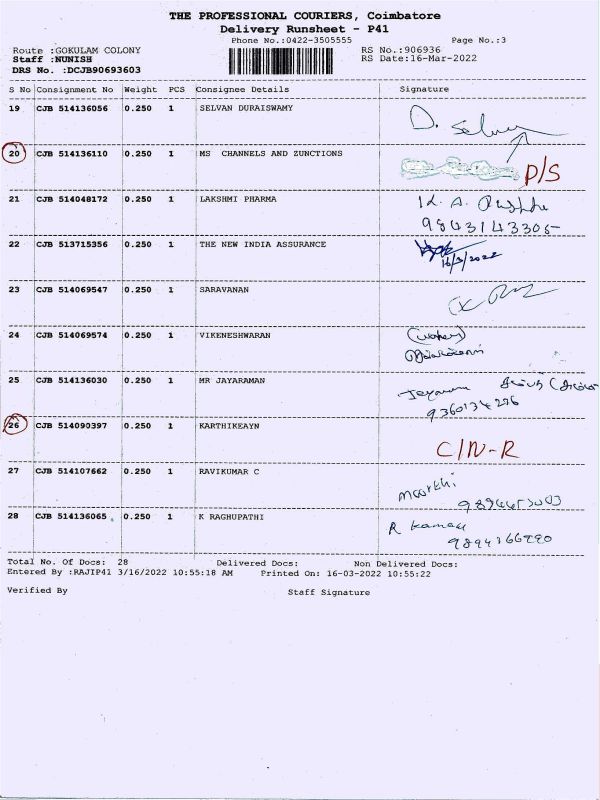 THE PROFESSIONAL COURIERS, Coimbatore
Delivery Runsheet - P41
Phone No.:0422-3505555 Page No.:3
Route :GOKULAM COLONY RS No.:906936
Staff :NUNISH RS Date:16-Mar-2022
DRS No. :DCJB90693603
S No Consignment No Weight PCS Consignee Details Signature
19 CJB 514136056 0.250 1 SELVAN DURAISWAMY D. Selvan
20 CJB 514136110 0.250 1 MS CHANNELS AND ZUNCTIONS P/S
21 CJB 514048172 0.250 1 LAKSHMI PHARMA K. A.
9843143305
22 CJB 513715356 0.250 1 THE NEW INDIA ASSURANCE
16/3/2022
23 CJB 514069547 0.250 1 SARAVANAN
24 CJB 514069574 0.250 1 VIKENESHWARAN
25 CJB 514136030 0.250 1 MR JAYARAMAN
9360134276
26 CJB 514090397 0.250 1 KARTHIKEAYN
C/N-R
27 CJB 514107662 0.250 1 RAVIKUMAR C Moorthi
28 CJB 514136065 0.250 1 K RAGHUPATHI R
Total No. Of Docs: 28 Delivered Docs: Non Delivered Docs:
Entered By :RAJIP41 3/16/2022 10:55:18 AM Printed On: 16-03-2022 10:55:22
Verified By Staff Signature